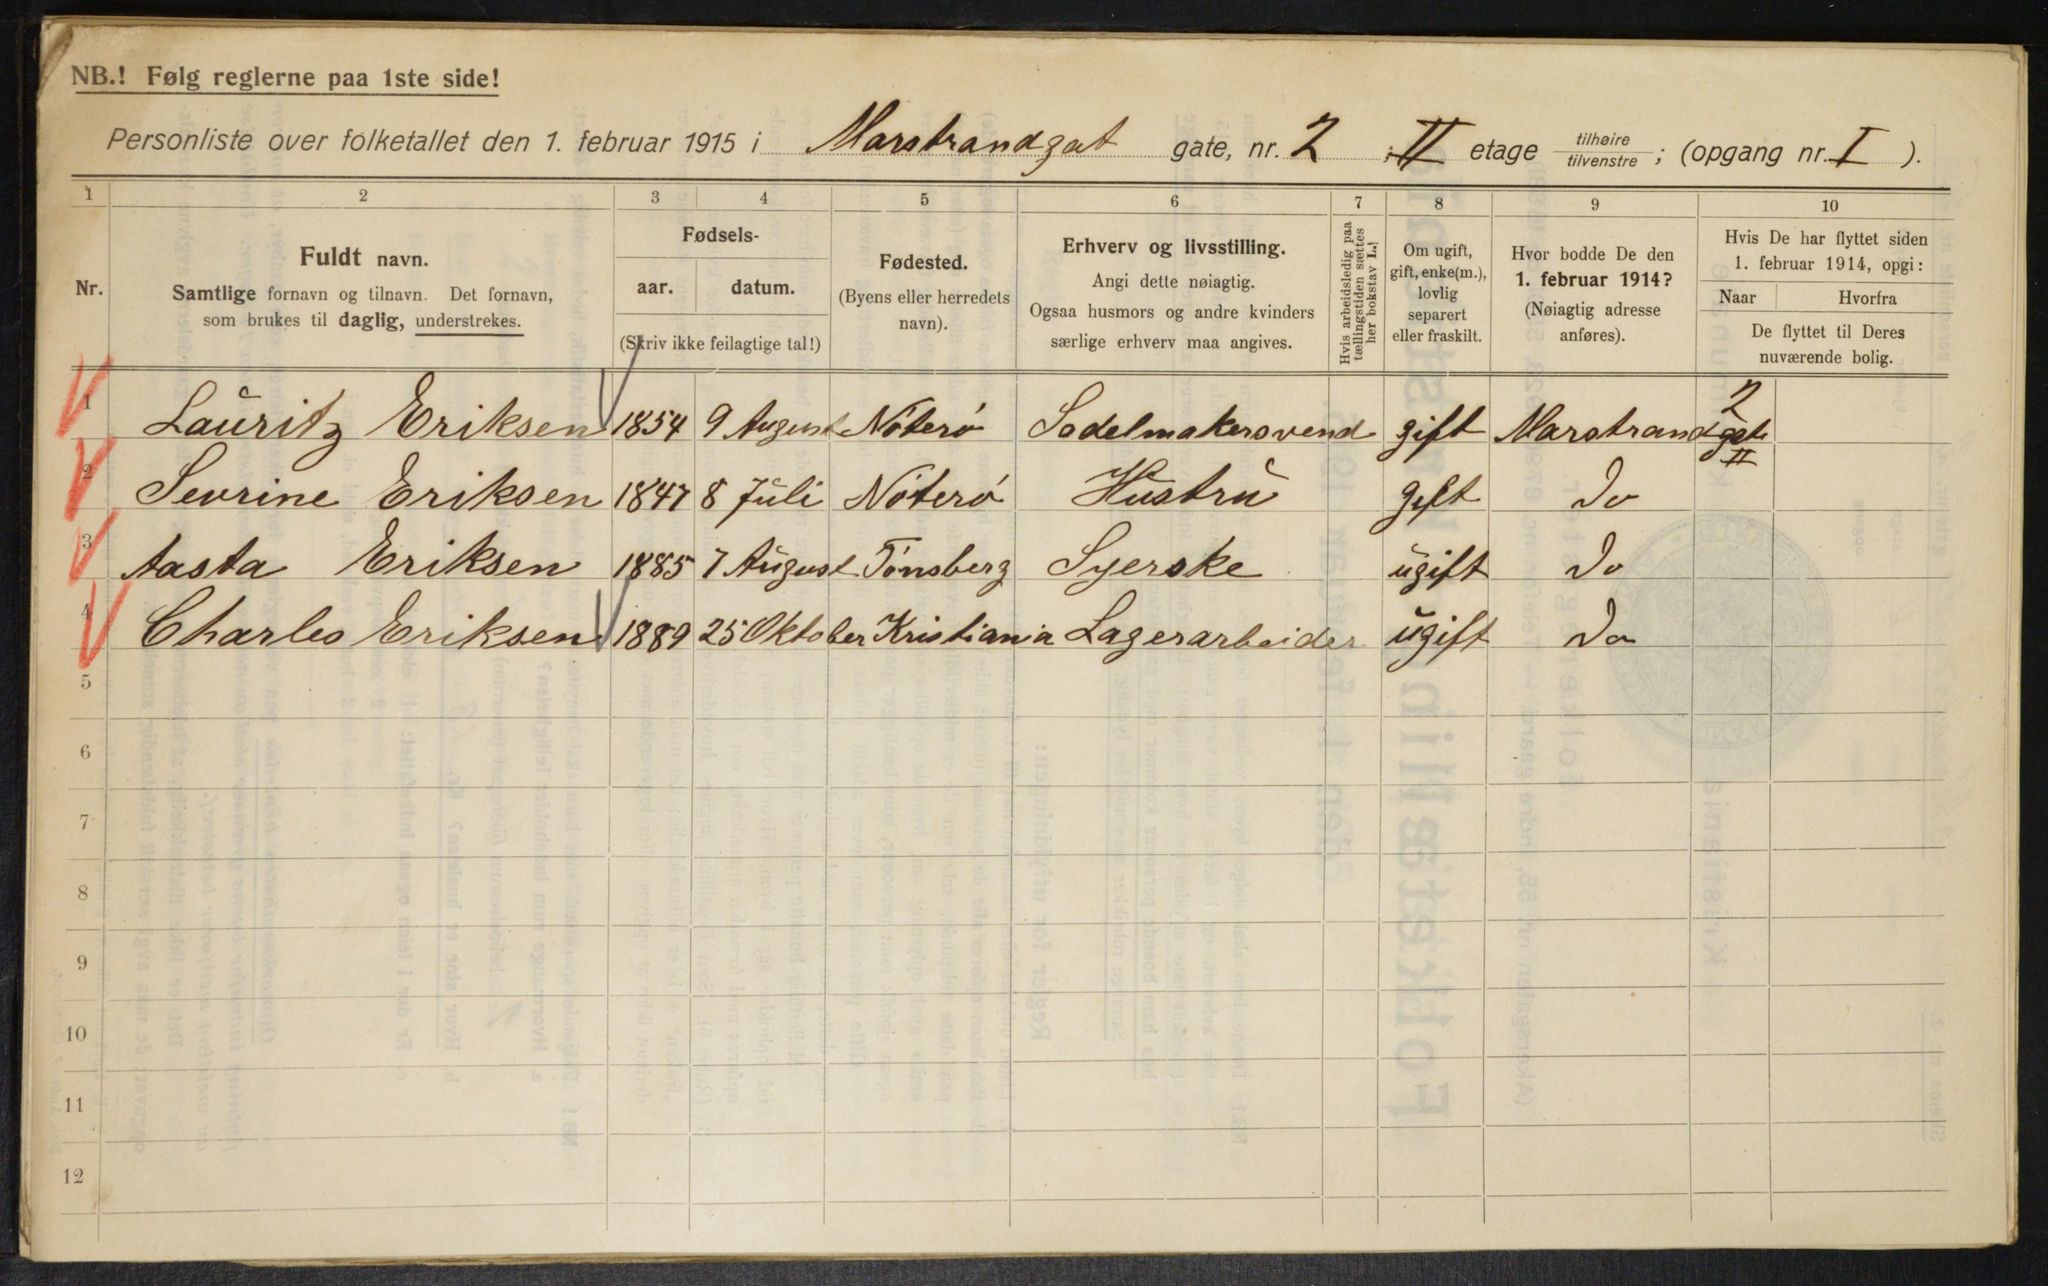 NB.! Følg reglerne paa 1ste side!
Personliste over folketallet den 1. februar 1915 i Marstrandgat gate, nr. 2 ; II etage tilhøire / tilvenstre ; (opgang nr. I ).
1 2 3 4 5 6 7 8 9 10
Nr.
Fuldt navn.
Samtlige fornavn og tilnavn. Det fornavn,
som brukes til daglig, understrekes.
Fødsels-
aar. datum.
(Skriv ikke feilagtige tal!)
Fødested.
(Byens eller herredets
navn).
Erhverv og livsstilling.
Angi dette nøiagtig.
Ogsaa husmors og andre kvinders
særlige erhverv maa angives.
Hvis arbeidsledig paa
tællingstiden sættes
her bokstav L.!
Om ugift,
gift, enke(m.),
lovlig
separert
eller fraskilt.
Hvor bodde De den
1. februar 1914?
(Nøiagtig adresse
anføres).
Hvis De har flyttet siden
1. februar 1914, opgi:
Naar Hvorfra
De flyttet til Deres
nuværende bolig.
1 Lauritz Eriksen 1854 9 August Nøterø Sadelmakersvend gift Marstrandgat 2 II
2 Sevrine Eriksen 1847 8 Juli Nøterø Hustru gift Do
3 Aasta Eriksen 1885 7 August Tønsberg Syerske ugift Do
4 Charles Eriksen 1889 25 Oktober Kristiania Lagerarbeider ugift Do
5
6
7
8
9
10
11
12